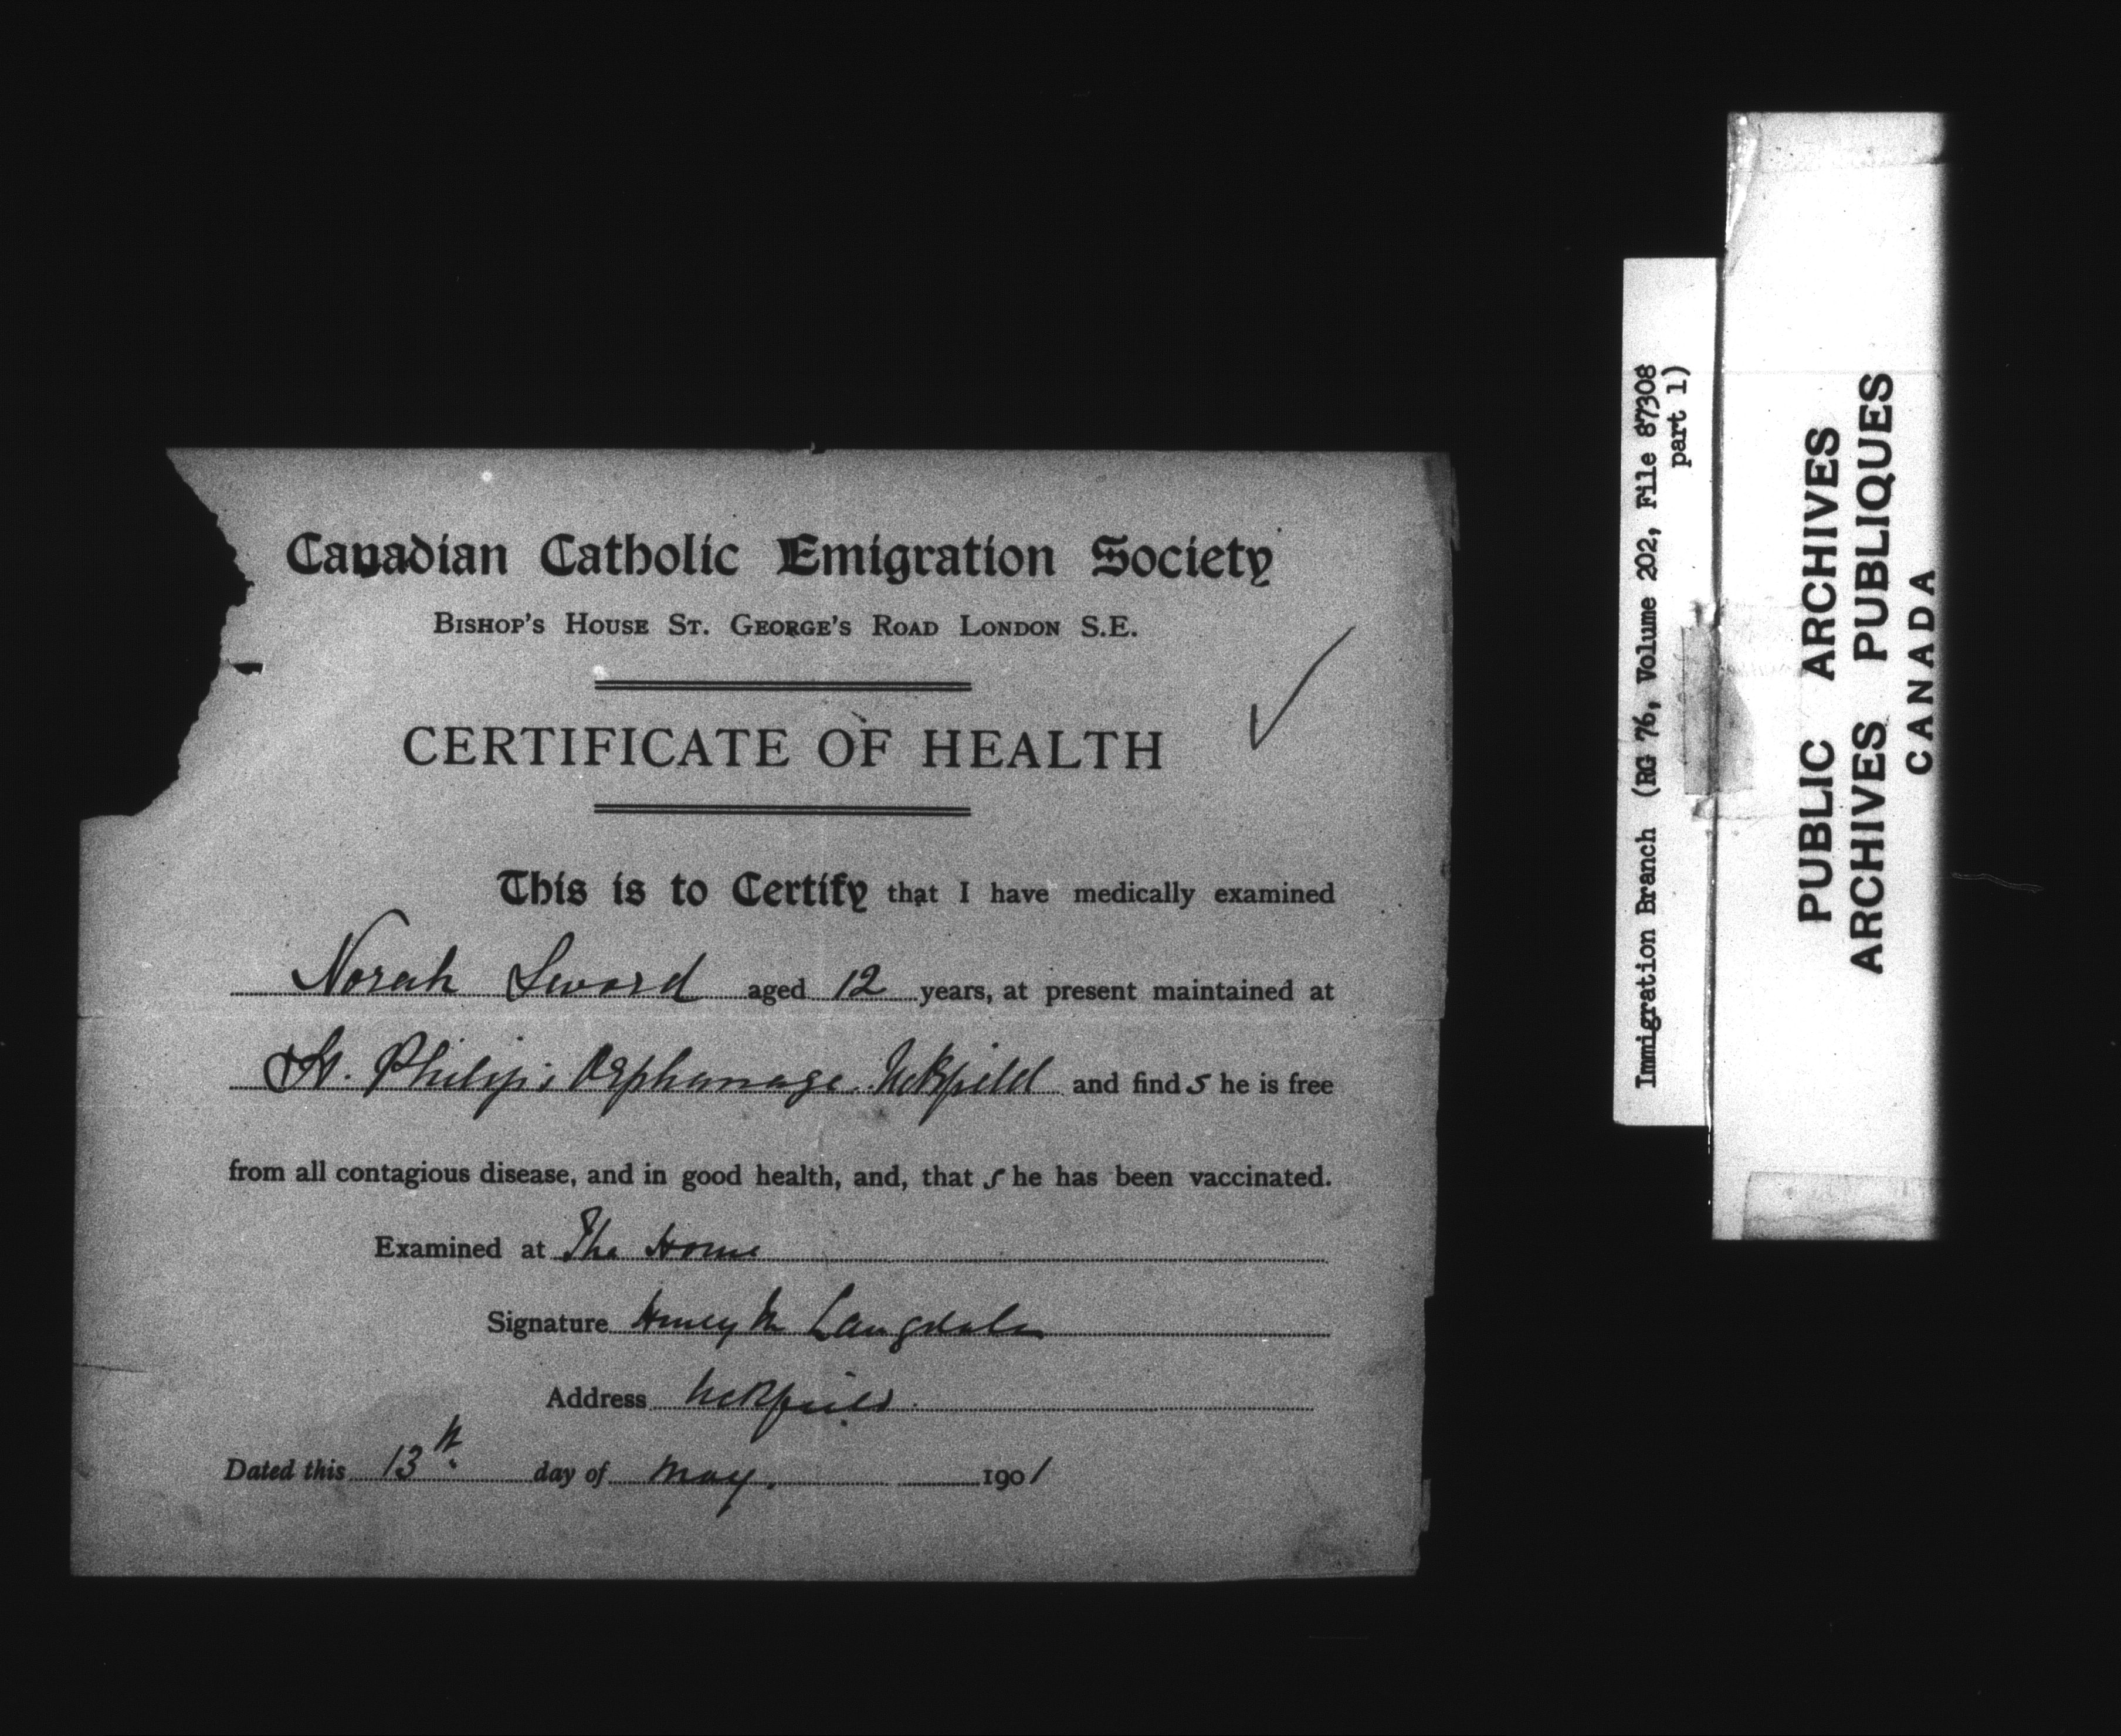 Canadian Catholic Emigration Society
BISHOP'S HOUSE ST. GEORGE'S ROAD LONDON S.E.
CERTIFICATE OF HEALTH
This is to Certify that I have medically examined
Norah Sword aged 12 years, at present maintained at
St. Philip's Orphanage Uckfield and find s he is free
from all contagious disease, and in good health, and, that s he has been vaccinated.
Examined at The Home
Signature Henry M Langdale
Address Uckfield.
Dated this 13th. day of May. 1901
Immigration Branch (RG 76, Volume 202, File 87308
part 1)
PUBLIC ARCHIVES
ARCHIVES PUBLIQUES
CANADA